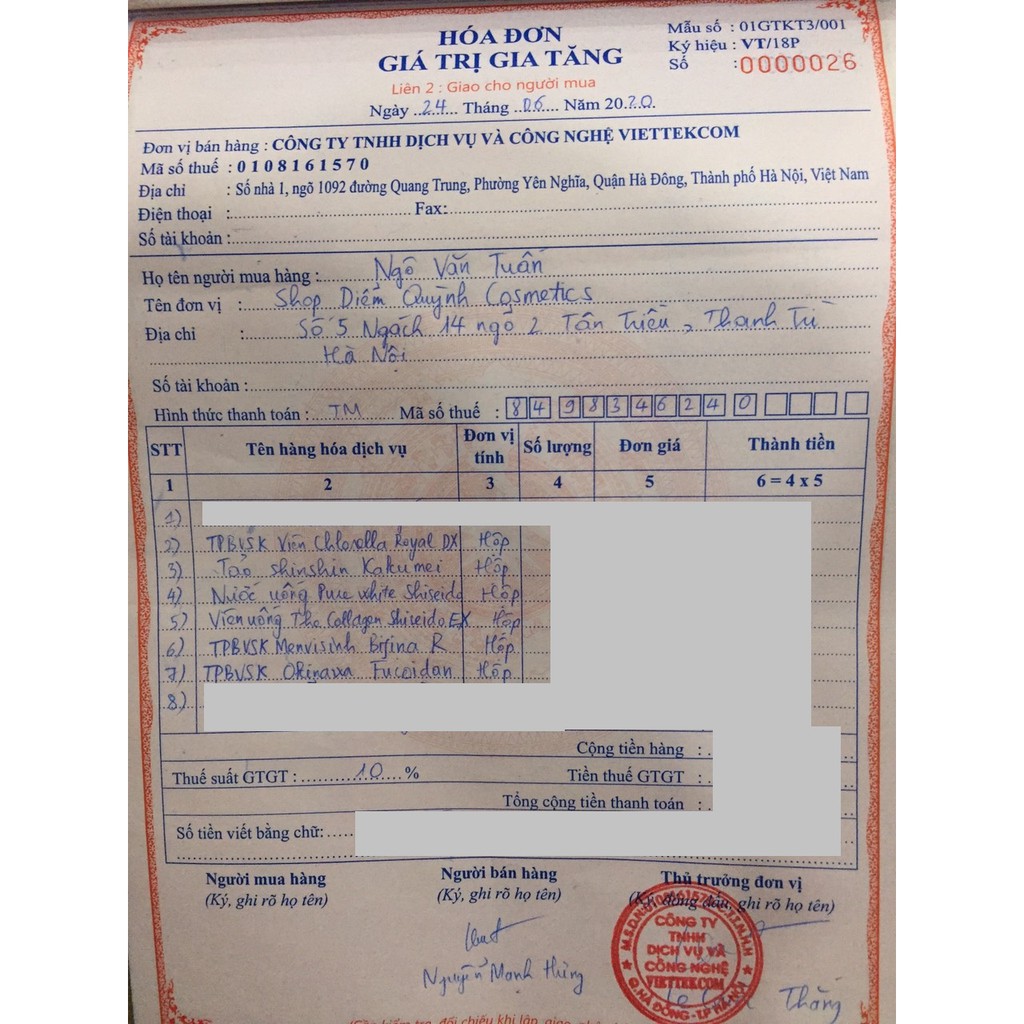 HÓA ĐƠN
GIÁ TRỊ GIA TĂNG
Liên 2 : Giao cho người mua
Ngày 24 Tháng 06 Năm 2020
Mẫu số : 01GTKT3/001
Ký hiệu : VT/18P
Số : 0000026
Đơn vị bán hàng : CÔNG TY TNHH DỊCH VỤ VÀ CÔNG NGHỆ VIETTEKCOM
Mã số thuế : 0108161570
Địa chỉ : Số nhà 1, ngõ 1092 đường Quang Trung, Phường Yên Nghĩa, Quận Hà Đông, Thành phố Hà Nội, Việt Nam
Điện thoại : Fax:
Số tài khoản :
Họ tên người mua hàng : Ngô Văn Tuấn
Tên đơn vị : Shop Diễm Quỳnh Cosmetics
Địa chỉ : Số 5 Ngách 14 ngõ 2 Tân Triều, Thanh Trì
Hà Nội
Số tài khoản :
Hình thức thanh toán : TM Mã số thuế : 84 98346240
STT Tên hàng hóa dịch vụ Đơn vị tính Số lượng Đơn giá Thành tiền
1 2 3 4 5 6 = 4 x 5
1)
2) TPBVSK Viên Chlorella Royal DX Hộp
3) Tảo shinshin Kakumei Hộp
4) Nước uống Pure white Shiseido Hộp
5) Viên uống The Collagen Shiseido EX Hộp
6) TPBVSK Menvisinh Bifina R Hộp
7) TPBVSK Okinawa Fucoidan Hộp
8)
Cộng tiền hàng :
Thuế suất GTGT : 10 % Tiền thuế GTGT :
Tổng cộng tiền thanh toán :
Số tiền viết bằng chữ:
Người mua hàng Người bán hàng Thủ trưởng đơn vị
(Ký, ghi rõ họ tên) (Ký, ghi rõ họ tên) (Ký, đóng dấu, ghi rõ họ tên)
CÔNG TY
TNHH
DỊCH VỤ VÀ
CÔNG NGHỆ
VIETTEKCOM
Q.HÀ ĐÔNG - TP HÀ NỘI
Nguyễn Mạnh Hùng
Thắng